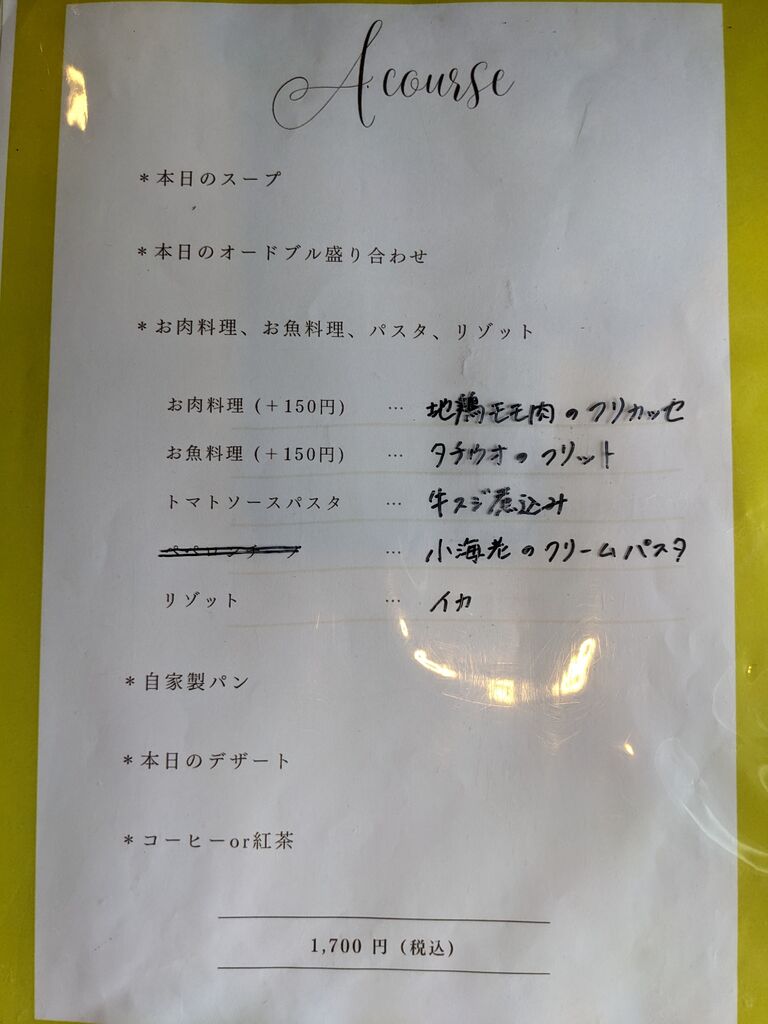 A course
＊本日のスープ
＊本日のオードブル盛り合わせ
＊お肉料理、お魚料理、パスタ、リゾット
お肉料理 (＋150円) … 地鶏モモ肉のフリカッセ
お魚料理 (＋150円) … タチウオのフリット
トマトソースパスタ … 牛スジ煮込み
ペペロンチーノ … 小海老のクリームパスタ
リゾット … イカ
＊自家製パン
＊本日のデザート
＊コーヒーor紅茶
1,700 円 (税込)